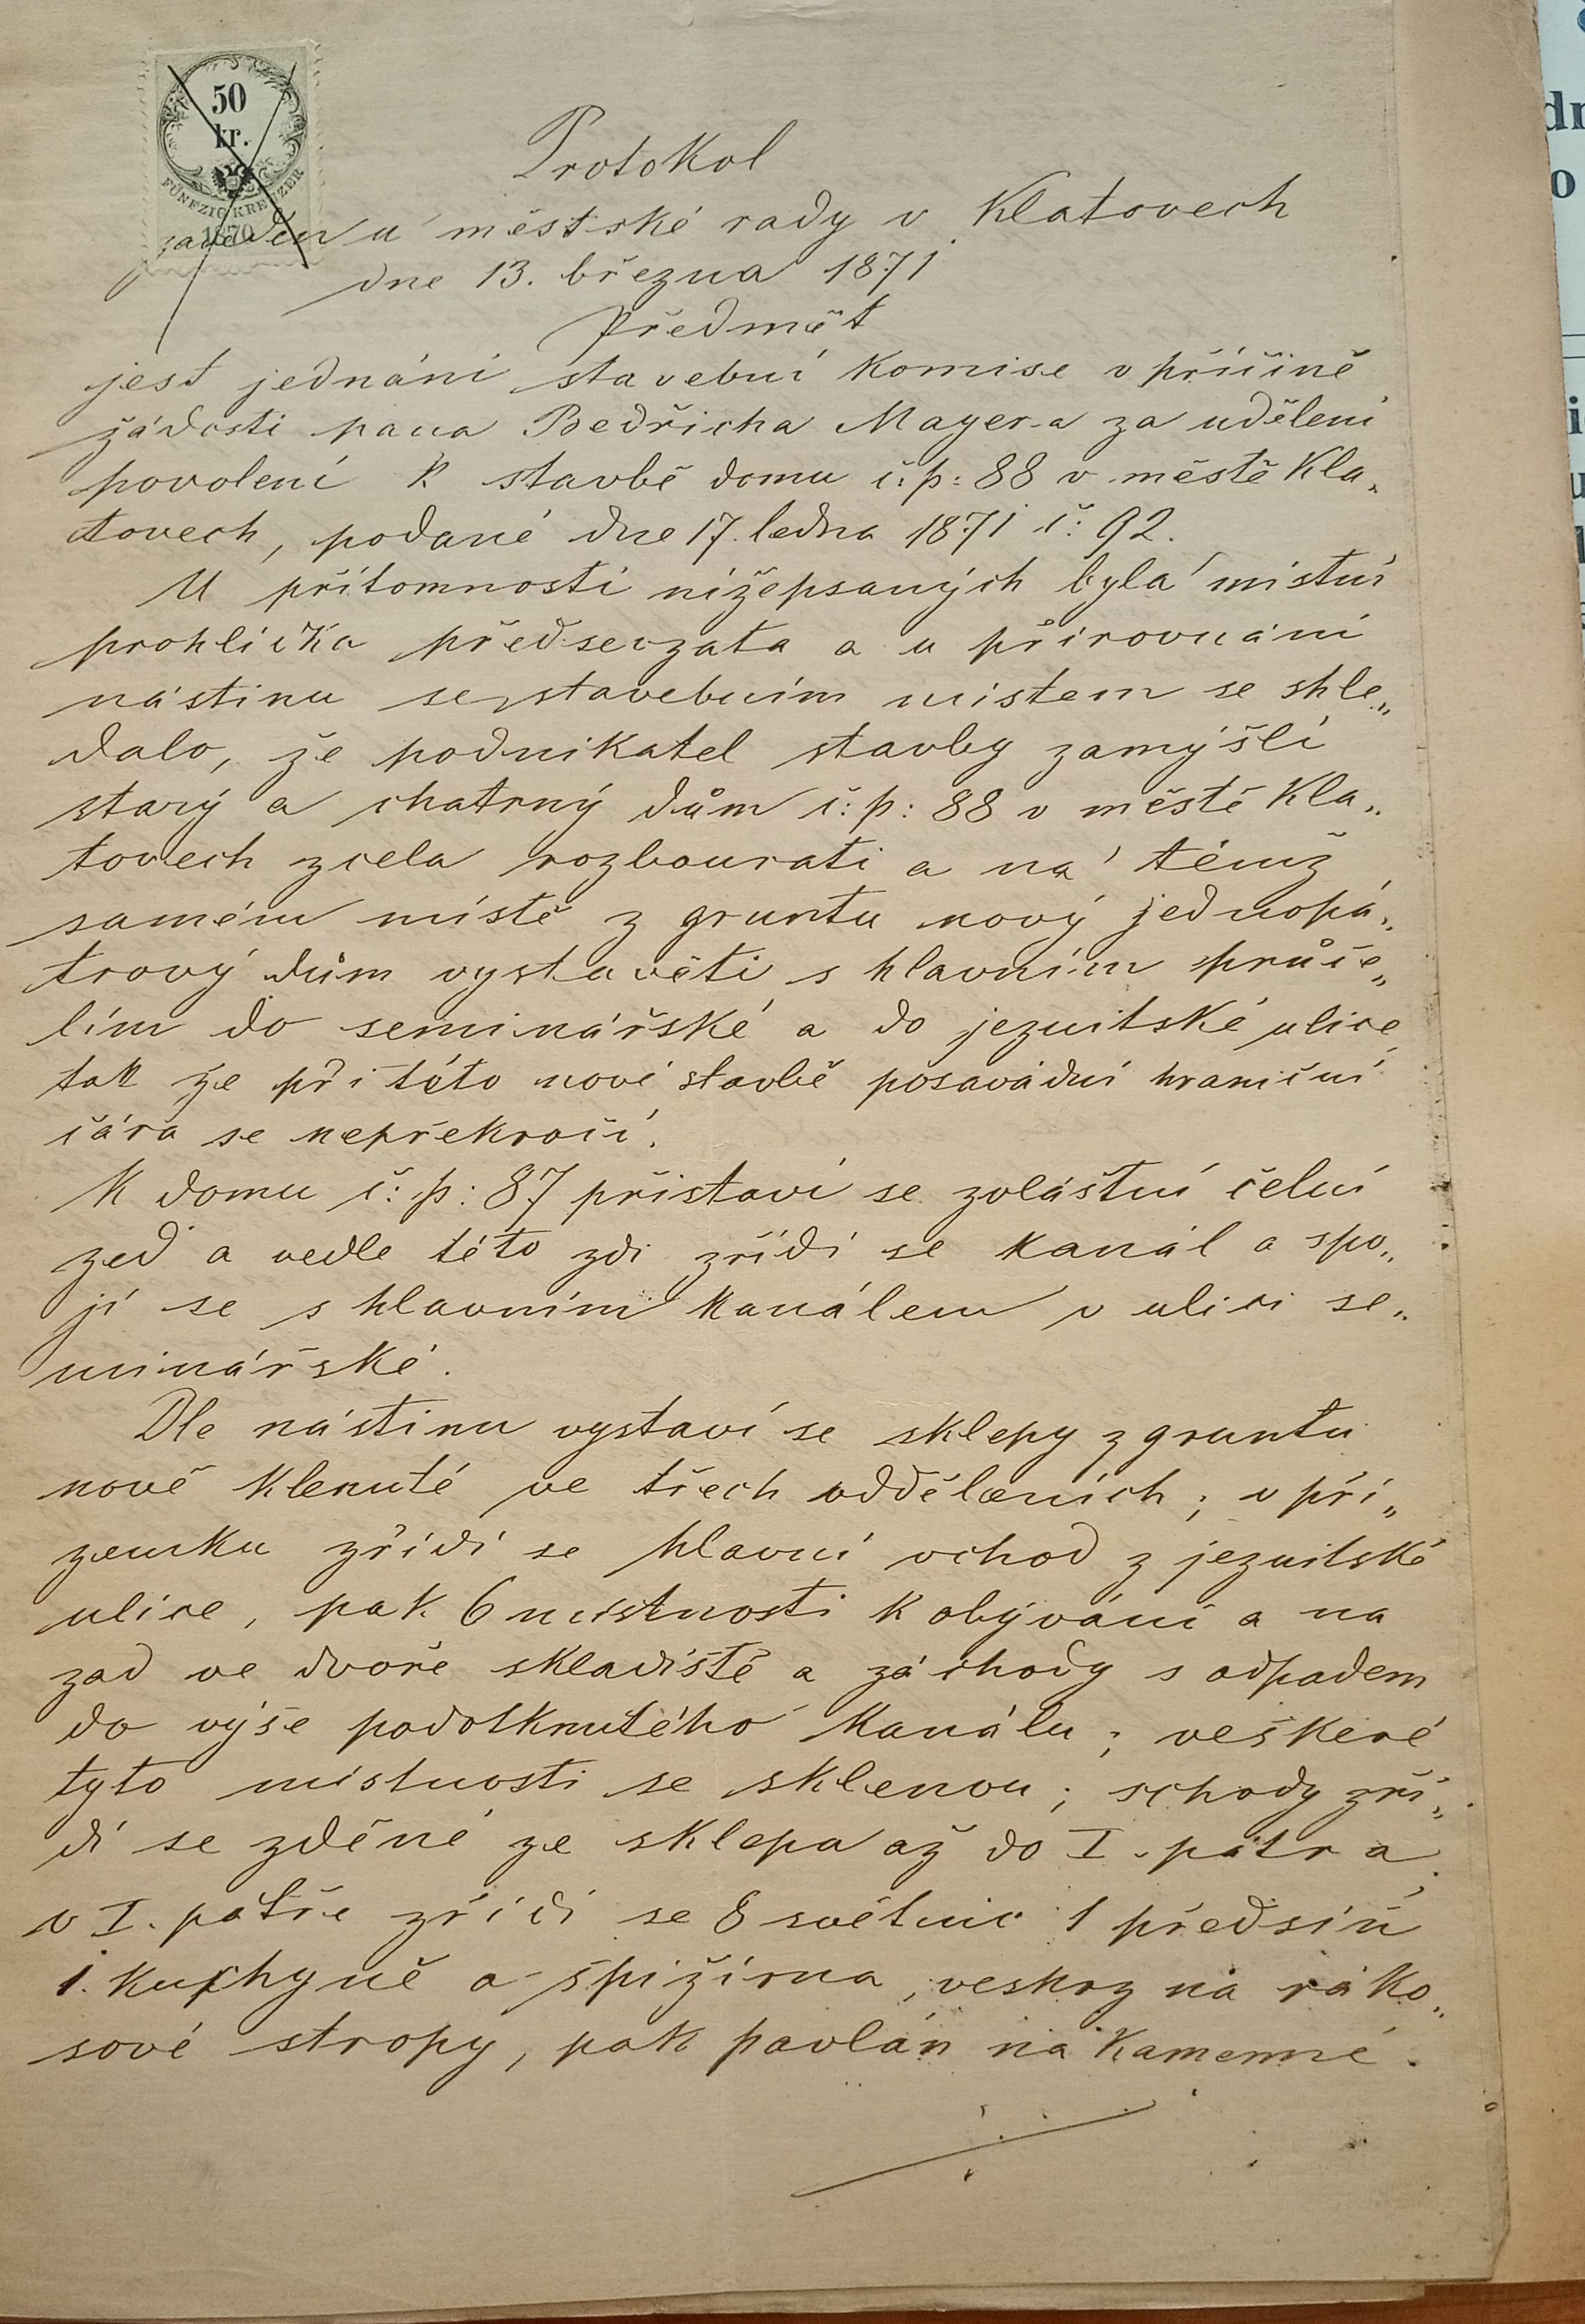 50
kr.
FÜNFZIG KREUZER
1870
Protokol
zaveden u městské rady v Klatovech
dne 13. března 1871
Předmět
jest jednání stavební komise v příčině
žádosti pana Bedřicha Mayera za udělení
povolení k stavbě domu č:p: 88 v městě Kla„
tovech, podané dne 17. ledna 1871 č: 92.
U přítomnosti nížepsaných byla místní
prohlídka předsevzata a u přirovnání
nástinu se stavebním místem se shle„
dalo, že podnikatel stavby zamýšlí
starý a chatrný dům č:p: 88 v městě Kla„
tovech zcela rozbourati a na témž
samém místě z gruntu nový jednopá„
trový dům vystavěti s hlavním průče„
lím do seminářské a do jezuitské ulice,
tak že při této nové stavbě posavádní hraniční
čára se nepřekročí.
K domu č:p: 87 přistaví se zvláštní čelní
zeď a vedle této zdi zřídí se kanál a spo„
jí se s hlavním kanálem v ulici se„
minářské.
Dle nástinu vystaví se sklepy z gruntu
nově klenuté ve třech odděleních; v pří„
zemku zřídí se hlavní vchod z jezuitské
ulice, pak 6 místností k obývání a na
zad ve dvoře skladiště a záchody s odpadem
do výše podotknutého kanálu; veškeré
tyto místnosti se sklenou; schody zří„
dí se zděné ze sklepa až do I. patra,
v I. patře zřídí se 8 světnic 1 předsíň
1. kuchyně a špižírna, veskrz na ráko„
sové stropy, pak pavlán na kamenné.